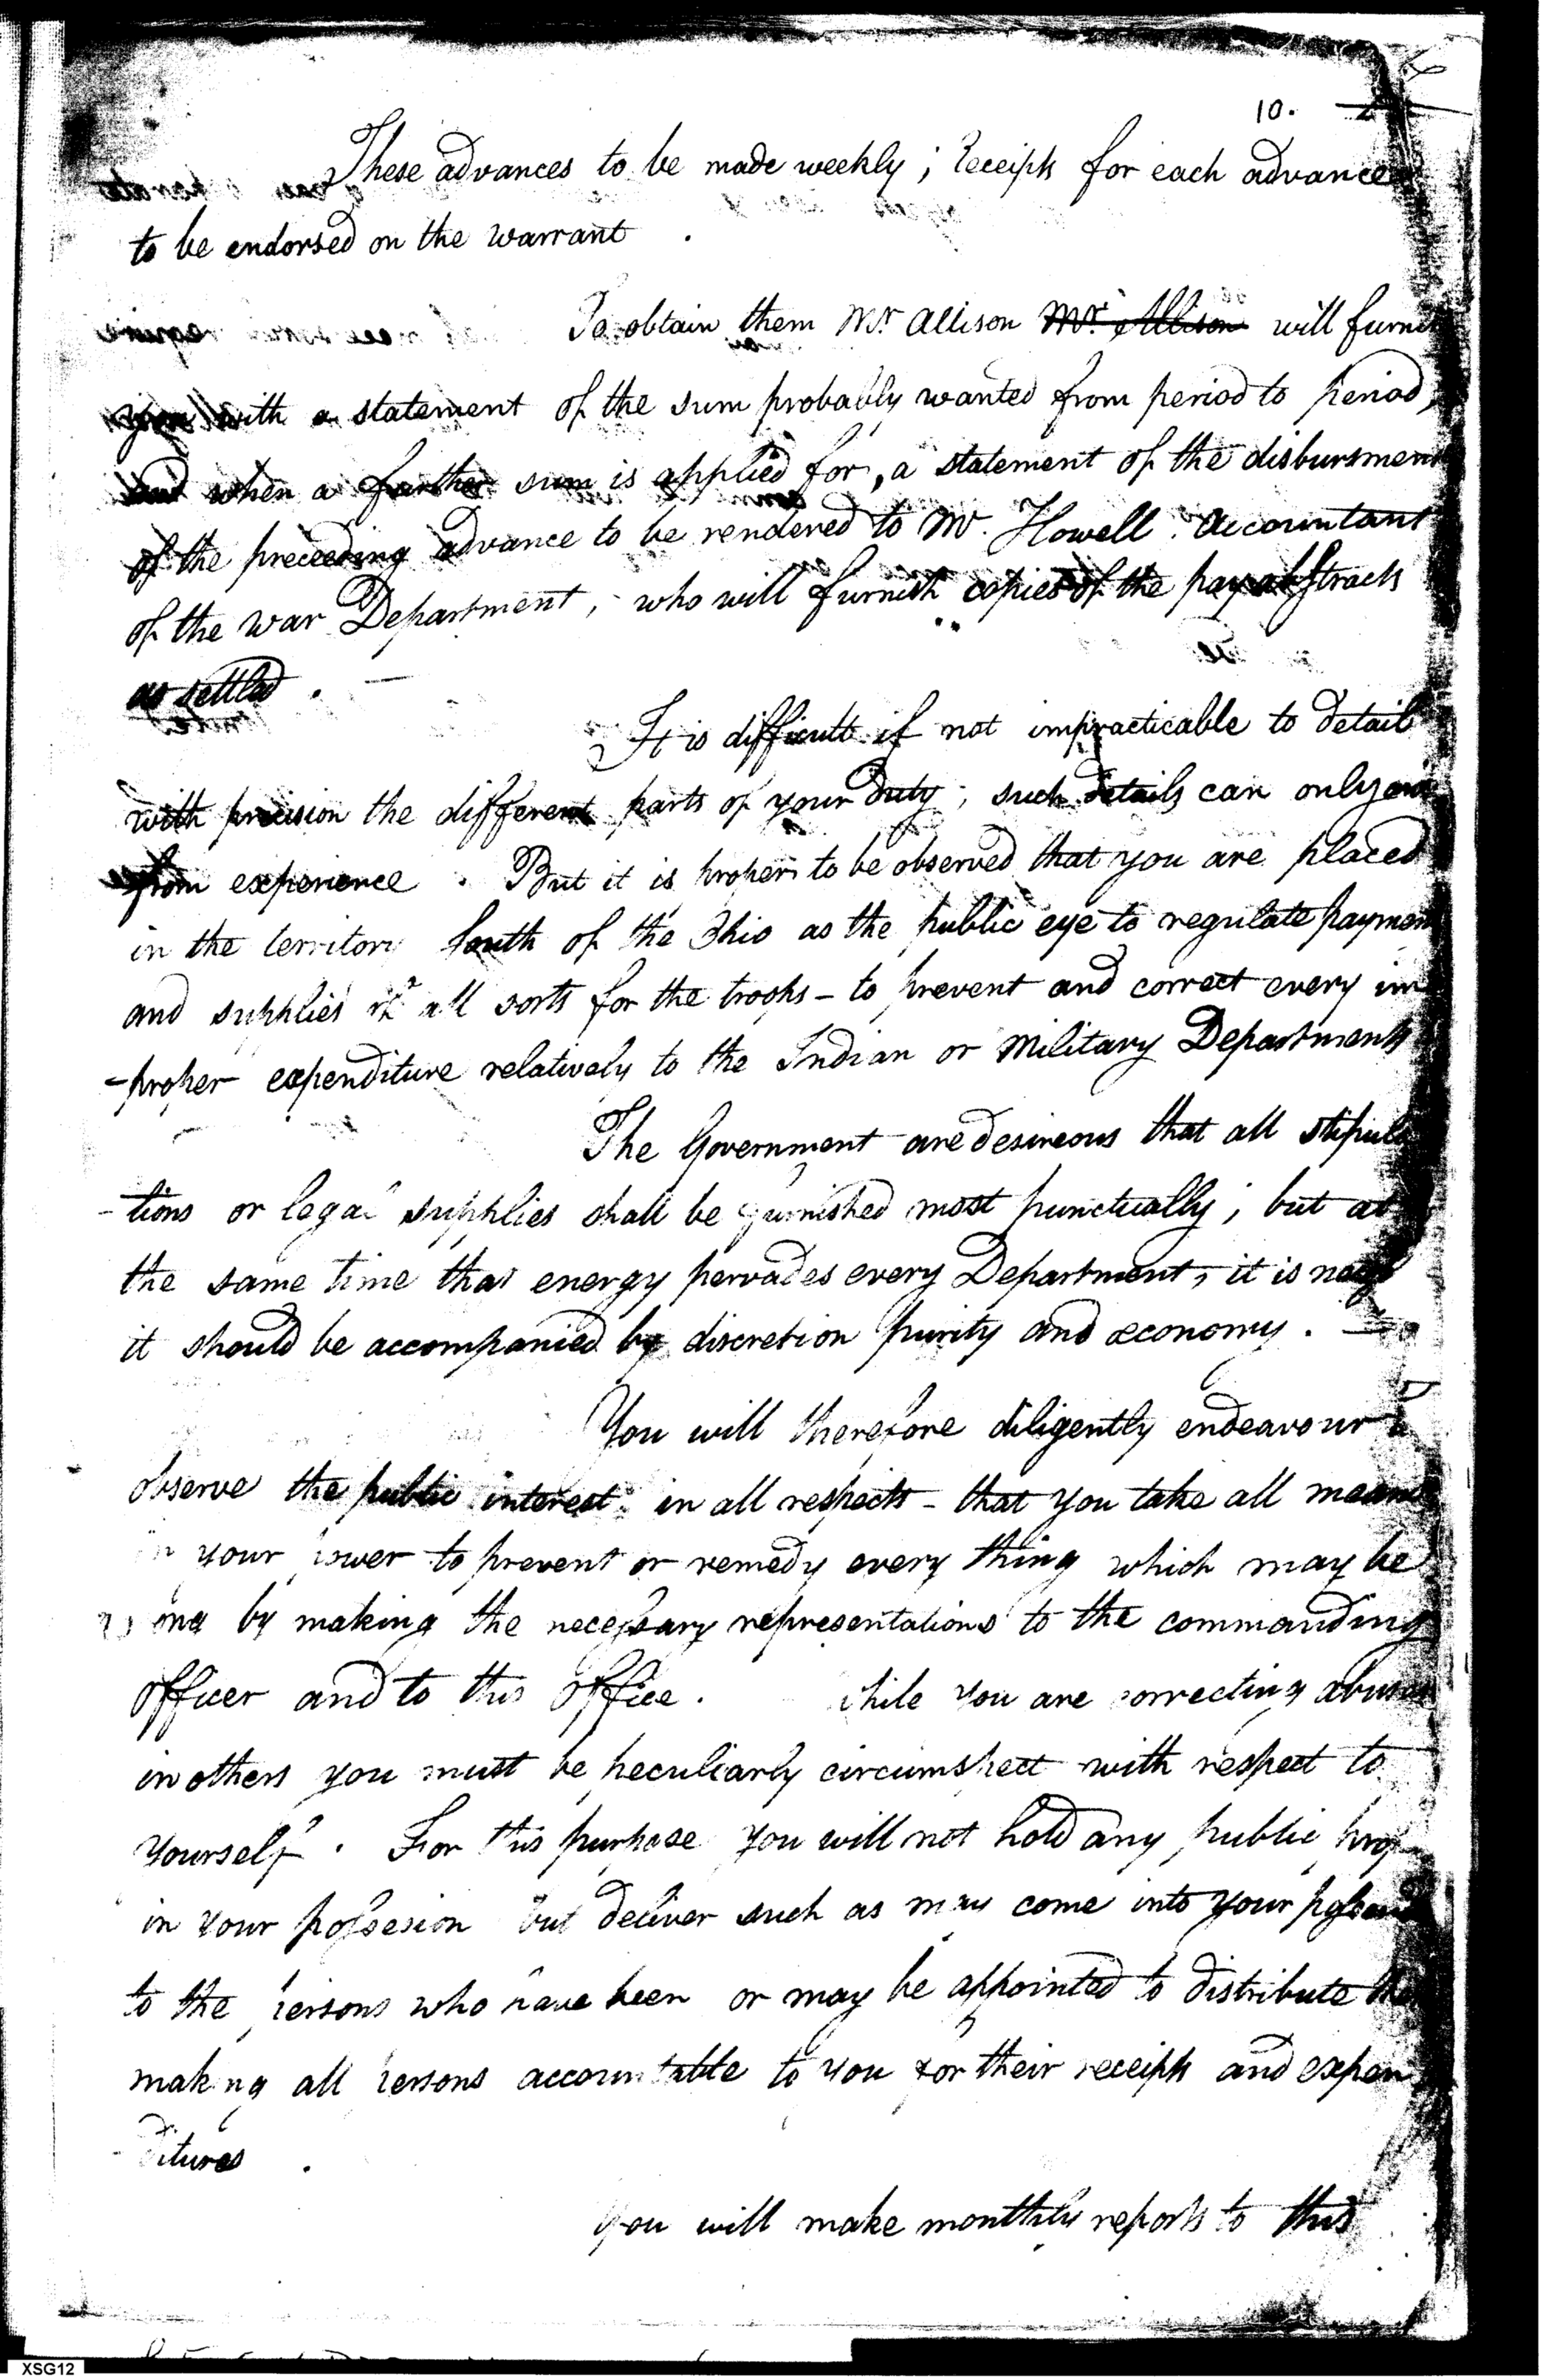 10.
These advances to be made weekly; Receipts for each advance
to be endorsed on the warrant.
To obtain them Mr. Allison Mr. Allison will furni
you with a statement of the sum probably wanted from period to period,
and when a further sum is applied for, a statement of the disbursmen
of the preceeding advance to be rendered to Mr. Howell. Accountant
of the war Department, who will furnish copies of the pay abstracts
as settled. —
It is difficult if not impracticable to detail
with precision the different parts of your Duty, such details can only
from experience. But it is proper to be observed that you are placed
in the territory South of the Ohio as the public eye to regulate paymen
and supplies of all sorts for the troops - to prevent and correct every im
-proper expenditure relatively to the Indian or Military Departments
The Government are desireous that all stipula
-tions or legal supplies shall be furnished most punctually; but at
the same time that energy pervades every Department, it is necey
it should be accompanied by discretion purity and œconomy. —
You will therefore diligently endeavour to
observe the public interest in all respects - that you take all means
in your power to prevent or remedy every thing which may be
wrong by making the necessary representations to the commanding
officer and to this office. While you are correcting abuses
in others you must be peculiarly circumspect with respect to
yourself. For this purpose you will not hold any public prop
in your possesion but deliver such as may come into your
to the persons who have been or may be appointed to distribute the
making all persons accountable to you for their receipts and expen
-ditures.
You will make monthly reports to this
XSG12